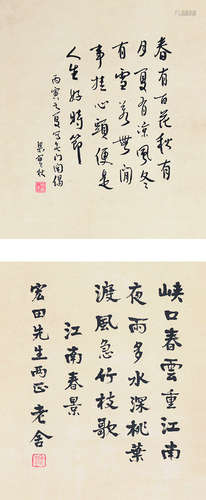 春有百花秋有
月夏有涼風冬
有雪若無閒
事挂心頭便是
人生好時節
丙寅之夏寫无门関偈
梁實秋
峽口春雲重江南
夜雨多水深桃葉
渡風急竹枝歌
江南春景
宏田先生两正 老舍